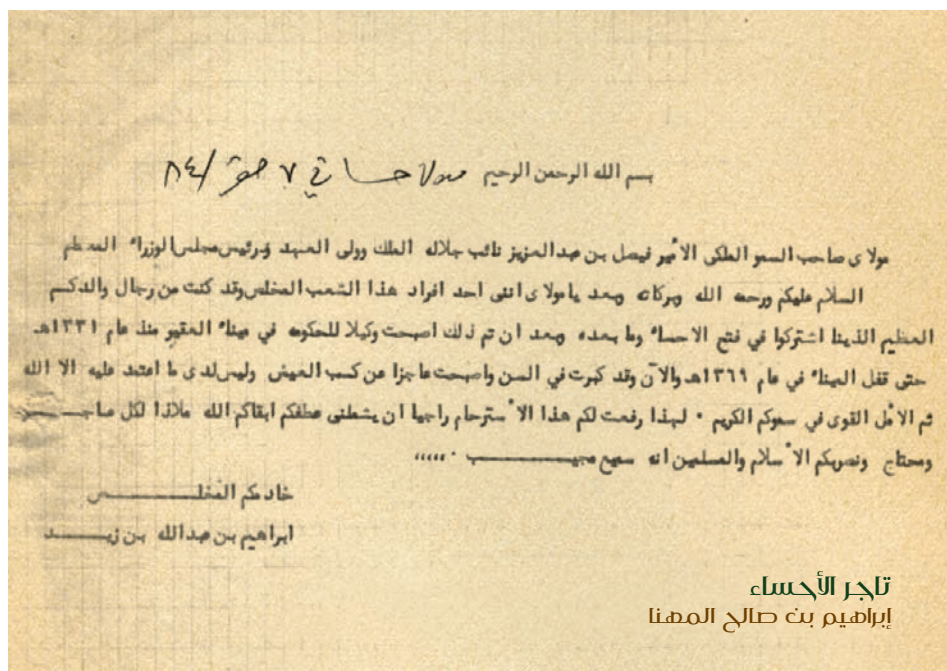 بسم الله الرحمن الرحيم في ٧ صفر /٨٤
مولاى صاحب السمو الملكى الأمير فيصل بن عبدالعزيز نائب جلاله الملك وولى العهد ورئيس مجلس الوزراء المعظم
السلام عليكم ورحمه الله وبركاته وبعد يا مولاى اننى احد افراد هذا الشعب المخلص وقد كنت من رجال والدكم
العظيم الذينا اشتركوا في فتح الاحساء وما بعده وبعد ان تم ذلك اصبحت وكيلا للحكومه في ميناء العقير منذ عام ١٣٣١هـ
حتى قفل الميناء في عام ١٣٦٩هـ والآن وقد كبرت في السن واصبحت عاجزا عن كسب العيش وليس لدى ما اعتمد عليه الا الله
ثم الأمل القوى في سموكم الكريم . لهذا رفعت لكم هذا الأسترحام راجيا ان يشملنى عطفكم ابقاكم الله ملاذا لكل عاجـــــز
ومحتاج ونصربكم الأسلام والمسلمين انه سميع مجيـــــــــب .،،،،،
خادمكم المخلـــــــص
ابراهيم بن عبدالله بن زيـــــد
تاجر الأحساء
إبراهيم بن صالح المهنا